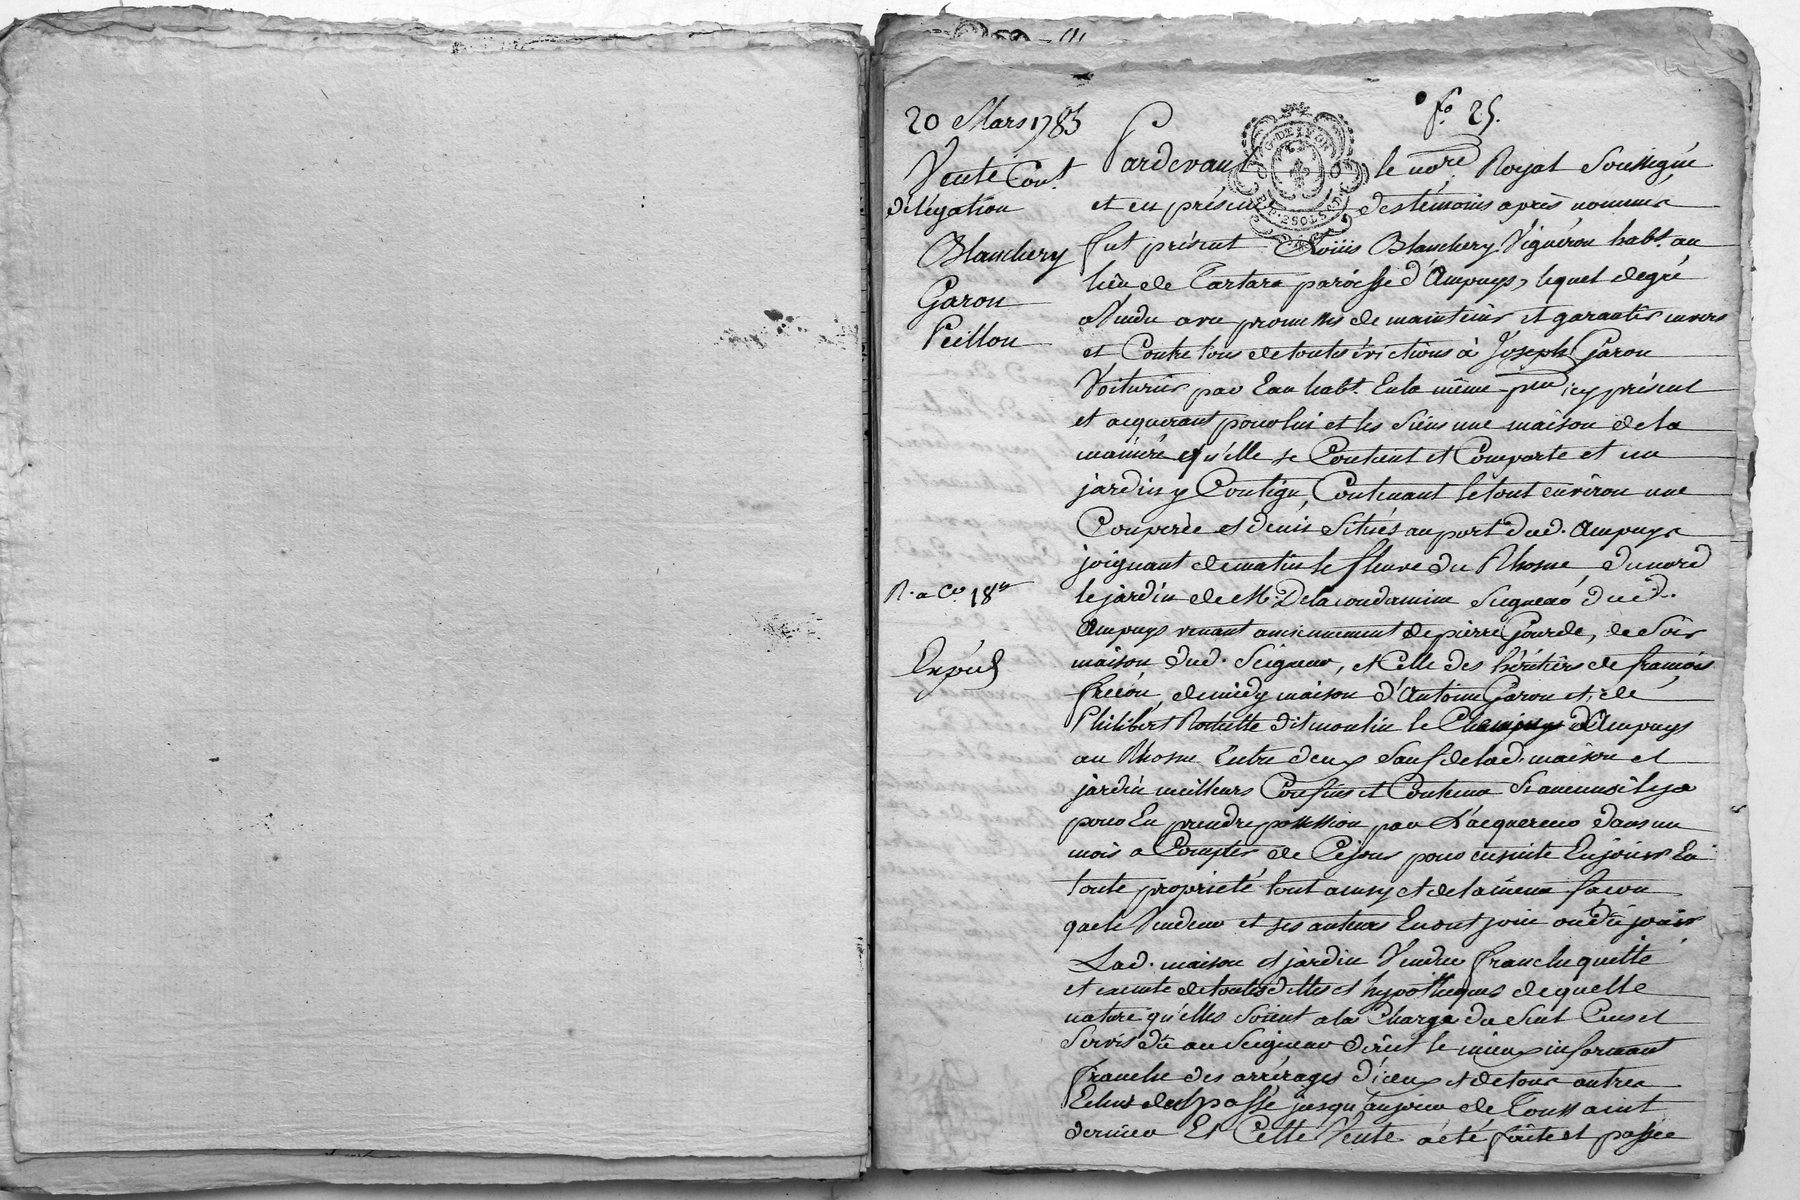 20 Mars 1783
fo. 25.
Vente Cont.
délégation
Blanchery
Garon
Peillon
R. a Con. 18
Expéd
G. DE LYON
Pardevant le nore. Royal Soussigné
et en présence des témoins après nommés
fut présent Loüis Blanchery Vigneron habt. au
lieu de Tartara paroisse d'Ampuys, lequel de gré
a Vendu avec promesses de maintenir et garantir envers
et Contre tous de toutes évictions à Joseph Garon
Voiturier par Eau habt. En la même psse icy présent
et acquerant pour lui et les Siens une maison de la
maniére qu'elle se Contient et Comporte et un
jardin y Contigu, Contenant le tout environ une
Couperée et demie Situés au port dud. Ampuys
joignant de matin le fleuve du Rhosne, du nord
le jardin de M. Delacondamine Seigneur dud.
Ampuys venant anciennement de pierre Gourde, de Soir
maison dud. Seigneur, et Celle des héritiers de françois
freiou, de midy maison d'Antoine Garon et de
Philibert Rochette dit moulin le Chemin d'Ampuys
au Rhosne Entre deux Sauf de lad. maison et
jardin meilleurs Confins et Contenu Si aucuns il y a
pour En prendre possession par L'acquereur dans un
mois a Compter de Ce jour pour ensuite En jouir En
toute proprieté tout ainsy et de la même façon
que le Vendeur et ses auteurs En ont joui ou dû jouir
Lad. maison et jardin Vendus franche quitte
et exempte de toutes dettes et hypothéques de quelle
nature qu'elles Soient a la Charge du Seul Cens et
Servis dû au Seigneur direct le mieux informant
franche des arrérages d'iceux et de tous autres
Echus du passé jusqu'au jour de Toussaint
dernier Et Cette Vente a été faite et passée